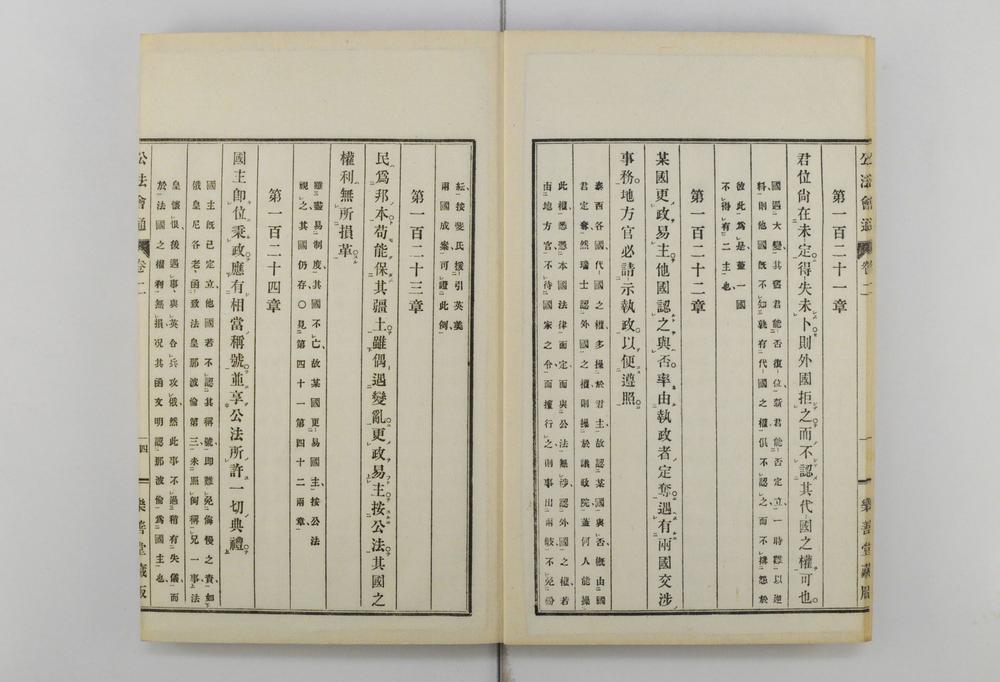 公法會通 卷二 樂善堂藏版
第一百二十一章
君位尙在未定得失未卜則外國拒之而不認其代國之權可也
國遇大變其舊君能否復位新君能否定立一時難以逆
料則他國旣不知孰有代國之權俱不認之而不搆怨於
彼此爲是蓋一國
不得有二主也
第一百二十二章
某國更政易主他國認之與否率由執政者定奪遇有兩國交涉
事務地方官必請示執政以便遵照
泰西各國代國之權多操於君主故認某國與否槪由國
君定奪然瑞士認外國之權則操於議政院蓋何人能操
此權悉憑本國法律而定而與公法無涉認外國之權若
由地方官不待國家之令而擅行之則事出兩岐不免紛
紜按斐氏援引英美
兩國成案可證此例
第一百二十三章
民爲邦本苟能保其疆土雖偶遇變亂更政易主按公法其國之
權利無所損革
雖變易制度其國不亡故某國更易國主按公法
視之其國仍存〇見第四十一第四十二兩章
第一百二十四章
國主卽位秉政應有相當稱號並享公法所許一切典禮
國主旣已定立他國若不認其稱號卽難免侮慢之責如
俄皇尼各老函致法皇那波倫第三未照例稱兄一事法
皇懷恨後遇事與英合兵攻俄然此事不過稍有失儀而
於法國之權利無損况其函文明認那波倫爲國主也
公法會通 卷二 四 樂善堂藏版